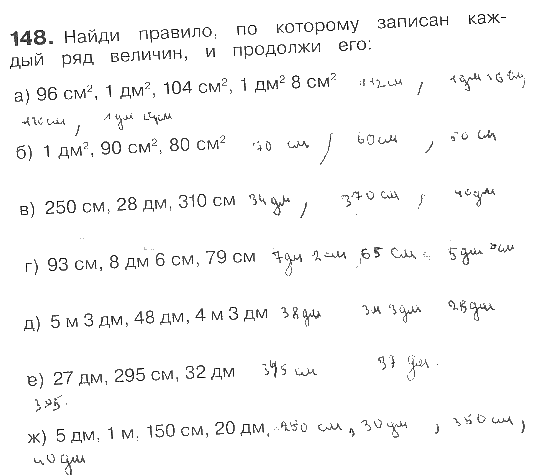 148. Найди правило, по которому записан каж-
дый ряд величин, и продолжи его:
а) 96 см², 1 дм², 104 см², 1 дм² 8 см² 112 см , 1 дм 16 см,
120 см , 1 дм
б) 1 дм², 90 см², 80 см² 70 см , 60 см , 50 см
в) 250 см, 28 дм, 310 см 34 дм , 370 см , 40 дм
г) 93 см, 8 дм 6 см, 79 см 7 дм 2 см , 65 см 5 дм см
д) 5 м 3 дм, 48 дм, 4 м 3 дм 38 дм 3 м 3 дм 28 дм
е) 27 дм, 295 см, 32 дм 345 см 37 дм.
395.
ж) 5 дм, 1 м, 150 см, 20 дм, 250 см , 30 дм , 350 см ,
40 дм